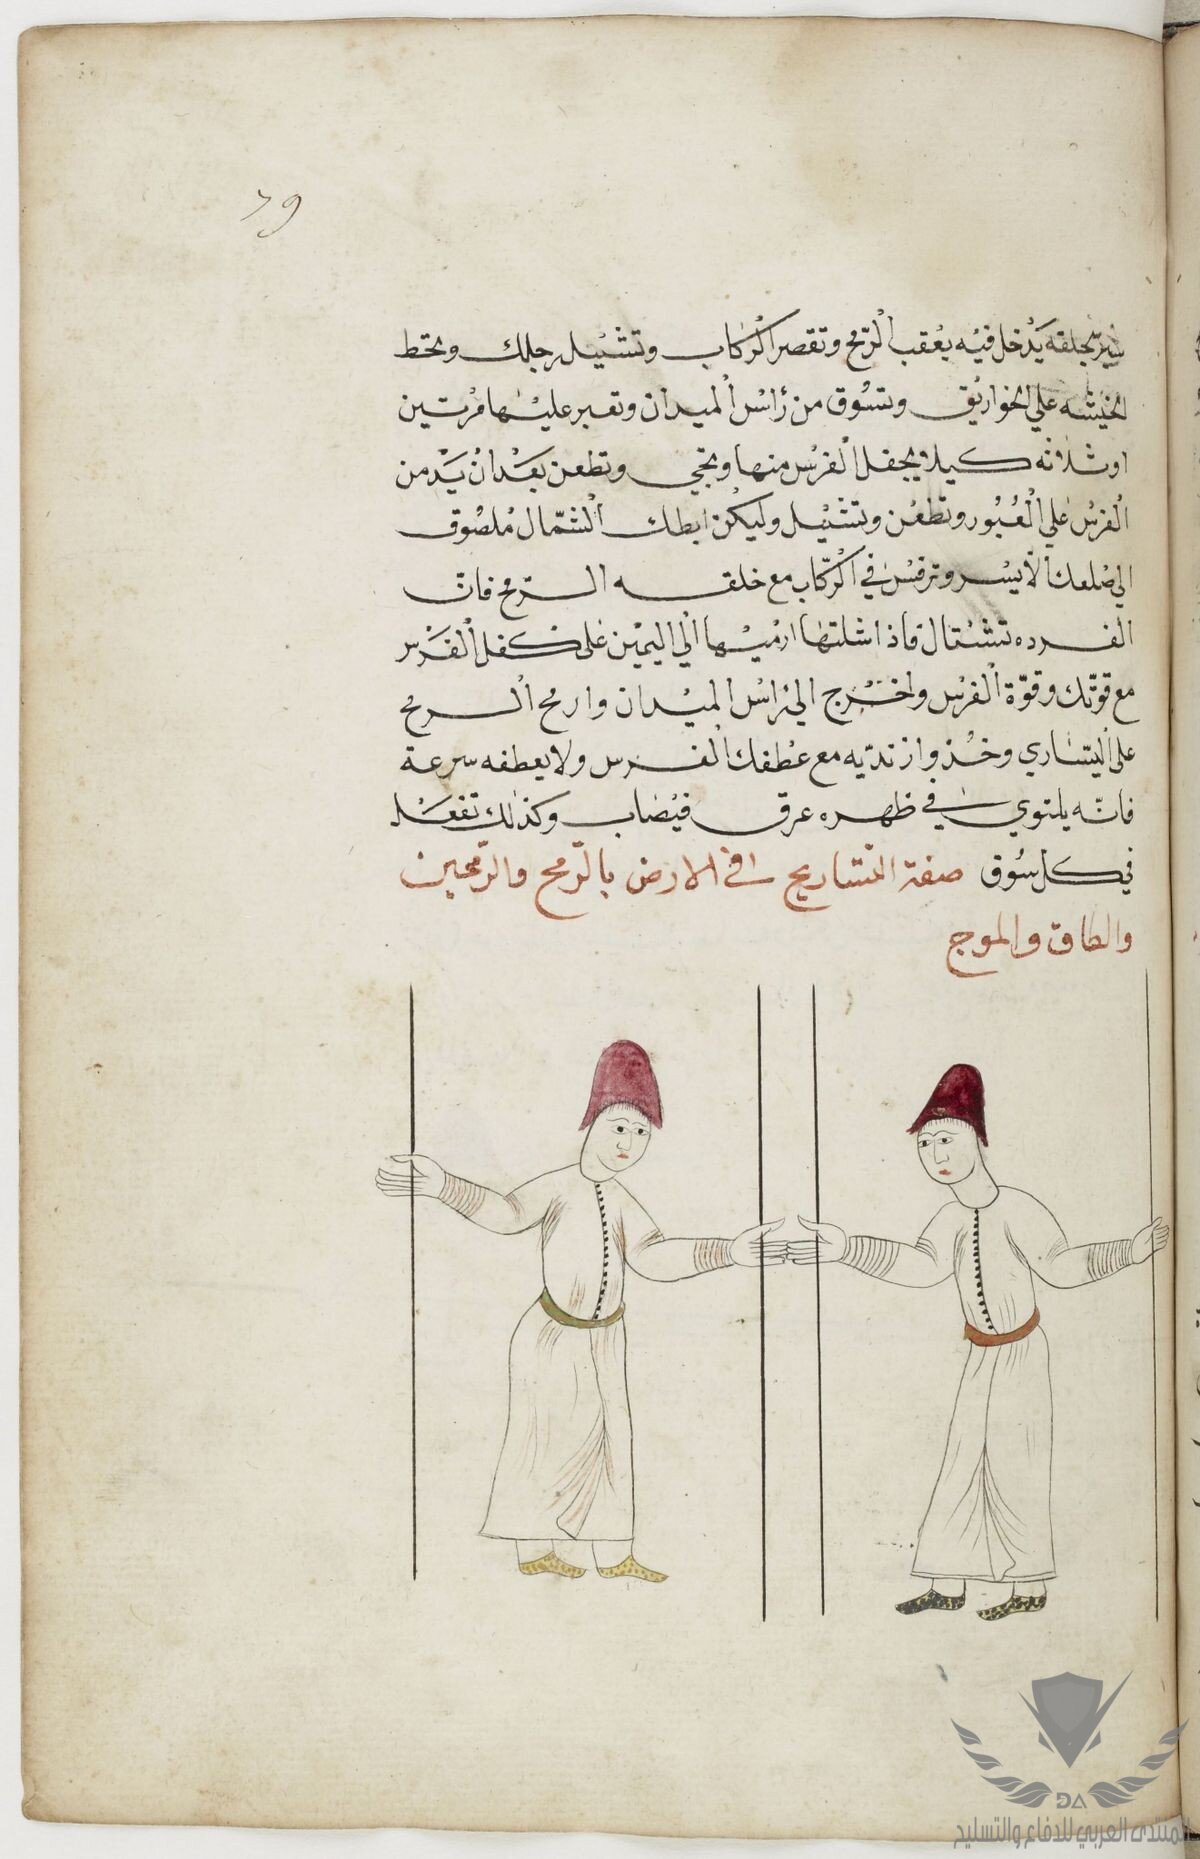 79
سير بحلقه يدخل فيه بعقب الرمح وتقصر الركاب وتشيل رجلك وتحط
الخيشه علي الخواريق وتسوق من رأس الميدان وتعبر عليها مرتين
او ثلاثه كيلا يجفل الفرس منها وتجي وتطعن بعد ان يدمن
الفرس علي العبور وتطعن وتشيل وليكن ابطك الشمال ملصوق
الي ضلعك الأيسر وترفس في الركاب مع خلقه الرمح فان
الفرده تنشال فاذا شلتها ارميها الي اليمين على كفل الفرس
مع قوتك وقوة الفرس واخرج الي راس الميدان وارمح الرمح
على اليساري وخذ مع عطفك الفرس ولا يعطفه سرعة
فانه يلتوي في ظهره عرق فيضاب وكذلك تفعل
في كل سوق صفة التشاريح في الارض بالرمح والرمحين
والطاق والموج
DA
المنتدى العربي للدفاع والتسليح